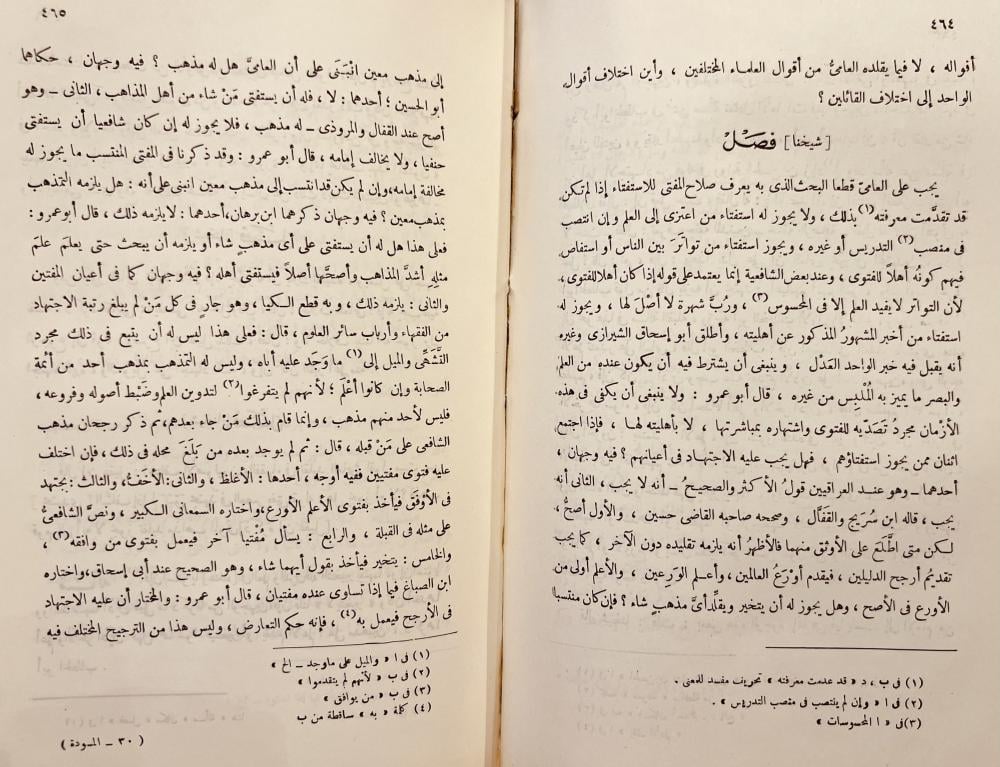 ٤٦٤
أقواله ، لا فيما يقلده العامىُّ من أقوال العلماء المختلفين ، وأين اختلاف أقوال
الواحد إلى اختلاف القائلين ؟
[ شيخنا ] فصَلْ
يجب على العامىّ قطعا البحث الذى به يعرف صلاح المفتى للاستفتاء إذا لم تكن
قد تقدَّمت معرفته (١) بذلك ، ولا يجوز له استفتاء من اعتزى إلى العلم وإن انتصب
فى منصب (٢) التدريس أو غيره ، ويجوز استفتاء من تواتَرَ بين الناس أو استفاض
فيهم كونُه أهلاً للفتوى ، وعند بعض الشافعية إنما يعتمد على قوله إذا كان أهلا للفتوى ،
لأن التواتر لا يفيد العلم إلا فى المحسوس (٣) ، ورُبَّ شهرة لا أصْلَ لها ، ويجوز له
استفتاء من أخبر المشهورُ المذكور عن أهليته ، وأطلق أبو إسحاق الشيرازى وغيره
أنه يقبل فيه خبر الواحد العَدْل ، وينبغى أن يشترط فيه أن يكون عنده من العلم
والبصر ما يميز به المُلْبِس من غيره ، قال أبو عمرو : ولا ينبغى أن يكفى فى هذه
الأزْمان مجردُ تَصَدِّيه للفتوى واشتهاره بمباشرتها ، لا بأهليته لهـا ، فإذا اجتمع
اثنان ممن يجوز استفتاؤهم ، فهل يجب عليه الاجتهـاد فى أعيانهم ؟ فيه وجهان ،
أحدهما ـ وهو عنـد العراقيين قولُ الأكثر والصحيحُ ـ أنه لا يجب ، الثانى أنه
يجب ، قاله ابن سُرَيج والقَفَّال ، وصححه صاحبه القاضى حسين ، والأول أصحُّ ،
لـكن متى اطَّلَعَ على الأوثق منهما فالأظهرُ أنه يلزمه تقليده دون الآخر ، كما يجب
تقديمُ أرجح الدليلين ، فيقدم أوْرَعُ العالمين ، وأعلـم الوَرِعين ، والأعلم أولى من
الأورع فى الأصح ، وهل يجوز له أن يتخير ويقلِّد أىَّ مذهبٍ شاء ؟ فإن كان منتسبا
(١) فى ب ، د « قد عدمت معرفته » تحريف مفسد للمعنى .
(٢) فى ا « وإن لم ينتصب فى منصب التدريس » .
(٣) فى « ا المحسوسات »
٤٦٥
إلى مذهب معين انْبَنَى على أن العامىَّ هل له مذهب ؟ فيه وجهان ، حكاهما
أبو الحسين ؛ أحدهما : لا ، فله أن يستفتى مَنْ شاء من أهل المذاهب ، الثانى ـ وهو
أصح عند القفال والمروذى ـ له مذهب ، فلا يجوز له إن كان شافعيا أن يستفتى
حنفيا ، ولا يخالف إمامه ، قال أبو عمرو : وقد ذكرنا فى المفتى المنتسب ما يجوز له
مخالفة إمامه ، وإن لم يكن قد انتسب إلى مذهب معين انبنى على أنه : هل يلزمه التمذهب
بمذهب معين ؟ فيه وجهان ذكرهما ابن برهان ، أحدهما : لا يلزمه ذلك ، قال أبو عمرو :
فعلى هذا هل له أن يستفتى على أى مذهبٍ شاء أو يلزمه أن يبحث حتى يعلَم علمَ
مثلِه أشدَّ المذاهب وأصحَّها أصلاً فيستفتى أهله ؟ فيه وجهان كما فى أعيان المفتين
والثانى : يلزمه ذلك ، وبه قطع الكيا ، وهو جارٍ فى كل مَنْ لم يبلغ رتبة الاجتهاد
من الفقهاء وأرباب سائر العلوم ، قال : فعلى هذا ليس له أن يتبع فى ذلك مجرد
التَّشَهِّى والميل إلى (١) ما وَجَد عليه أباه ، وليس له التمذهب بمذهب أحد من أئمة
الصحابة وإن كانوا أعْلَم ؛ لأنهم لم يتفرغوا (٢) لتدوين العلم وضَبْط أصوله وفروعه ،
فليس لأحد منهم مذهب ، وإنما قام بذلك مَنْ جاء بعدهم ، ثم ذكر رجحان مذهب
الشافعى على مَنْ قبله ، قال : ثم لم يوجد بعده من بَلَغَ محله فى ذلك ، فإن اختلف
عليه فتوى مفتيين ففيه أوجه ، أحدها : الأغلظ ، والثانى : الأخَفُّ ، والثالث : يجتهد
فى الأوْفَق فيأخذ بفتوى الأعلم الأورع ، واختاره السمعانى الكبير ، ونصَّ الشافعىُّ
على مثله فى القبلة ، والرابع : يسأل مُفْتيا آخر فيعمل بفتوى من وافقه (٣) ،
والخامس : يتخير فيأخذ بقول أيهما شاء ، وهو الصحيح عند أبى إسحاق ، واختاره
ابن الصباغ فيما إذا تساوى عنده مفتيان ، قال أبو عمرو : والمختار أن عليه الاجتهاد
فى الأرجح فيعمل به (٤) ، فإنه حكم التعارض ، وليس هذا من الترجيح المختلف فيه
(١) فى ا « والميل على ما وجد ـ الخ »
(٢) فى ب « لأنهم لم يتقدموا »
(٣) فى ب « من يوافق »
(٤) كلمة « به » ساقطة من ب
( ٣٠ ـ المسودة )